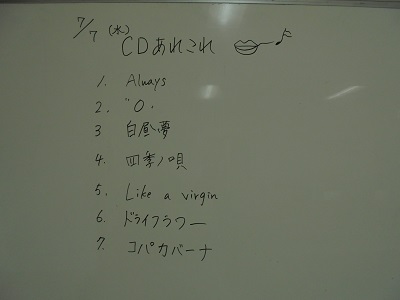 7/7 (水)
CDあれこれ
1. Always
2. "O.
3 白昼夢
4. 四季ノ唄
5. Like a virgin
6. ドライフラワー
7. コパカバーナ